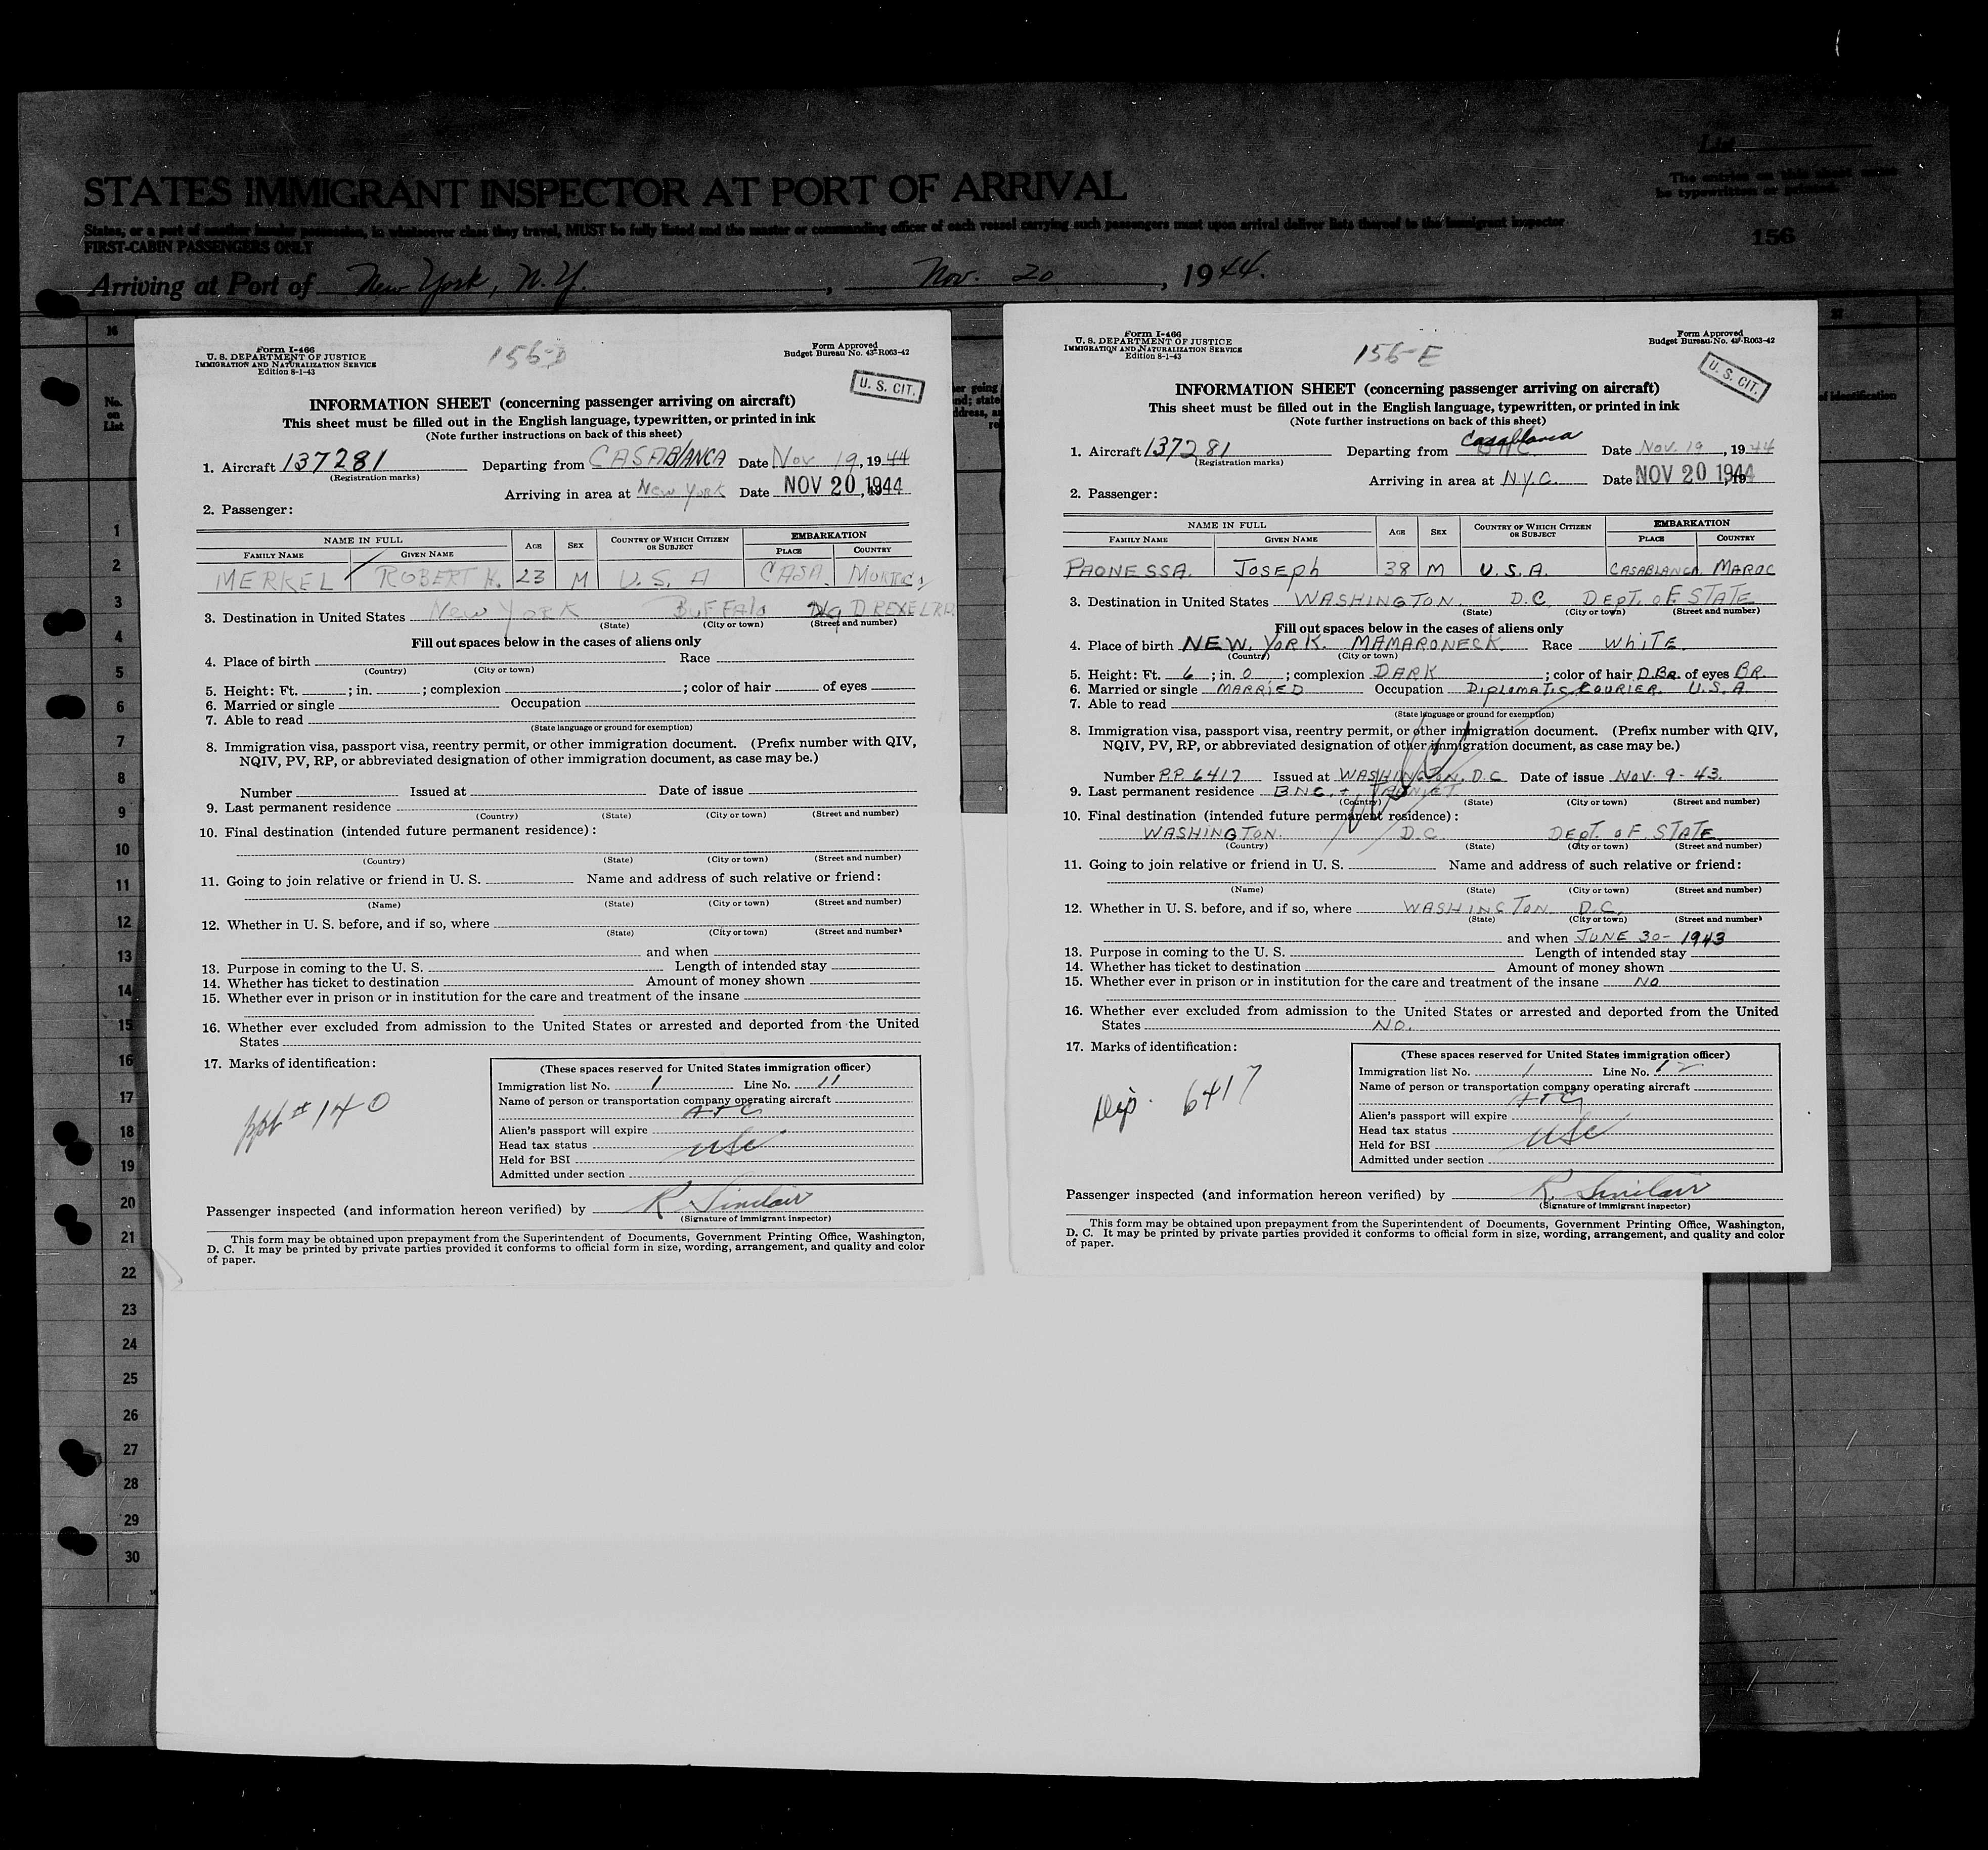 List
The entries on this sheet must
be typewritten or printed.
STATES IMMIGRANT INSPECTOR AT PORT OF ARRIVAL
States, or a port of another insular possession, in whatsoever class they travel, MUST be fully listed and the master or commanding officer of each vessel carrying such passengers must upon arrival deliver lists thereof to the immigrant inspector
FIRST-CABIN PASSENGERS ONLY
156
Arriving at Port of New York, N.Y. , Nov. 20 , 1944.
Form I-466
U. S. DEPARTMENT OF JUSTICE
IMMIGRATION AND NATURALIZATION SERVICE
Edition 8-1-43
156-D
Form Approved
Budget Bureau No. 43-R063-42
U. S. CIT.
INFORMATION SHEET (concerning passenger arriving on aircraft)
This sheet must be filled out in the English language, typewritten, or printed in ink
(Note further instructions on back of this sheet)
1. Aircraft 137281 Departing from CASABLANCA Date Nov 19, 1944
(Registration marks)
Arriving in area at New York Date NOV 20 1944, 19
2. Passenger:
NAME IN FULL AGE SEX COUNTRY OF WHICH CITIZEN OR SUBJECT EMBARKATION
FAMILY NAME GIVEN NAME PLACE COUNTRY
MERKEL ROBERT H. 23 M U. S. A CASA.
3. Destination in United States New YORK BUFFAlo DREXEL RD.
(State) (City or town) (Street and number)
Fill out spaces below in the cases of aliens only
4. Place of birth Race
(Country) (City or town)
5. Height: Ft. ; in. ; complexion ; color of hair of eyes
6. Married or single Occupation
7. Able to read
(State language or ground for exemption)
8. Immigration visa, passport visa, reentry permit, or other immigration document. (Prefix number with QIV,
NQIV, PV, RP, or abbreviated designation of other immigration document, as case may be.)
Number Issued at Date of issue
9. Last permanent residence
(Country) (State) (City or town) (Street and number)
10. Final destination (intended future permanent residence):
(Country) (State) (City or town) (Street and number)
11. Going to join relative or friend in U. S. Name and address of such relative or friend:
(Name) (State) (City or town) (Street and number)
12. Whether in U. S. before, and if so, where
(State) (City or town) (Street and number)
and when
13. Purpose in coming to the U. S. Length of intended stay
14. Whether has ticket to destination Amount of money shown
15. Whether ever in prison or in institution for the care and treatment of the insane
16. Whether ever excluded from admission to the United States or arrested and deported from the United
States
17. Marks of identification:
ppt # 140
(These spaces reserved for United States immigration officer)
Immigration list No. 1 Line No. 11
Name of person or transportation company operating aircraft
ATC
Alien's passport will expire
Head tax status USC
Held for BSI
Admitted under section
Passenger inspected (and information hereon verified) by R Sinclair
(Signature of immigrant inspector)
This form may be obtained upon prepayment from the Superintendent of Documents, Government Printing Office, Washington,
D. C. It may be printed by private parties provided it conforms to official form in size, wording, arrangement, and quality and color
of paper.
Form I-466
U. S. DEPARTMENT OF JUSTICE
IMMIGRATION AND NATURALIZATION SERVICE
Edition 8-1-43
156-E
Form Approved
Budget Bureau No. 43-R063-42
U. S. CIT.
INFORMATION SHEET (concerning passenger arriving on aircraft)
This sheet must be filled out in the English language, typewritten, or printed in ink
(Note further instructions on back of this sheet)
1. Aircraft 137281 Departing from Casablanca Date Nov. 19, 1944
(Registration marks)
Arriving in area at N.Y.C. Date NOV 20 1944, 19
2. Passenger:
NAME IN FULL AGE SEX COUNTRY OF WHICH CITIZEN OR SUBJECT EMBARKATION
FAMILY NAME GIVEN NAME PLACE COUNTRY
PAONESSA. JOSEPh 38 M U.S.A. CASABLANCA. MAROC
3. Destination in United States WASHINGTON. D.C. DEPT. OF STATE
(State) (City or town) (Street and number)
Fill out spaces below in the cases of aliens only
4. Place of birth NEW. YORK. MAMARONECK. Race WhiTE.
(Country) (City or town)
5. Height: Ft. 6 ; in. 0 ; complexion DARK ; color of hair D.BR. of eyes BR.
6. Married or single MARRIED Occupation DIPLOMATIC COURIER. U.S.A.
7. Able to read
(State language or ground for exemption)
8. Immigration visa, passport visa, reentry permit, or other immigration document. (Prefix number with QIV,
NQIV, PV, RP, or abbreviated designation of other immigration document, as case may be.)
Number P.P. 6417 Issued at WASHINGTON. D.C Date of issue NOV. 9 - 43.
9. Last permanent residence
(Country) (State) (City or town) (Street and number)
10. Final destination (intended future permanent residence):
WASHINGTON. D.C. DEPT. OF STATE
(Country) (State) (City or town) (Street and number)
11. Going to join relative or friend in U. S. Name and address of such relative or friend:
(Name) (State) (City or town) (Street and number)
12. Whether in U. S. before, and if so, where WASHINGTON D.C.
(State) (City or town) (Street and number)
and when JUNE 30 - 1943
13. Purpose in coming to the U. S. Length of intended stay
14. Whether has ticket to destination Amount of money shown
15. Whether ever in prison or in institution for the care and treatment of the insane NO
16. Whether ever excluded from admission to the United States or arrested and deported from the United
States NO.
17. Marks of identification:
Dip. 6417
(These spaces reserved for United States immigration officer)
Immigration list No. 1 Line No. 12
Name of person or transportation company operating aircraft
ATC
Alien's passport will expire
Head tax status USC
Held for BSI
Admitted under section
Passenger inspected (and information hereon verified) by R. Sinclair
(Signature of immigrant inspector)
This form may be obtained upon prepayment from the Superintendent of Documents, Government Printing Office, Washington,
D. C. It may be printed by private parties provided it conforms to official form in size, wording, arrangement, and quality and color
of paper.
16
No.
on
List
1
2
3
4
5
6
7
8
9
10
11
12
13
14
15
16
17
18
19
20
21
22
23
24
25
26
27
28
29
30
of identification